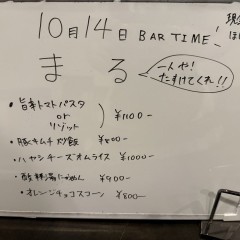 10月14日 BAR TIME!
現
ほ
まる
一人や!
たすけてくれ!!
・旨辛トマトパスタ
or
リゾット
¥1100-
・豚キムチ炒飯 ¥800-
・ハヤシチーズオムライス ¥1000-
・酸辣湯にゅうめん ¥900-
・オレンジチョコスコーン ¥800-